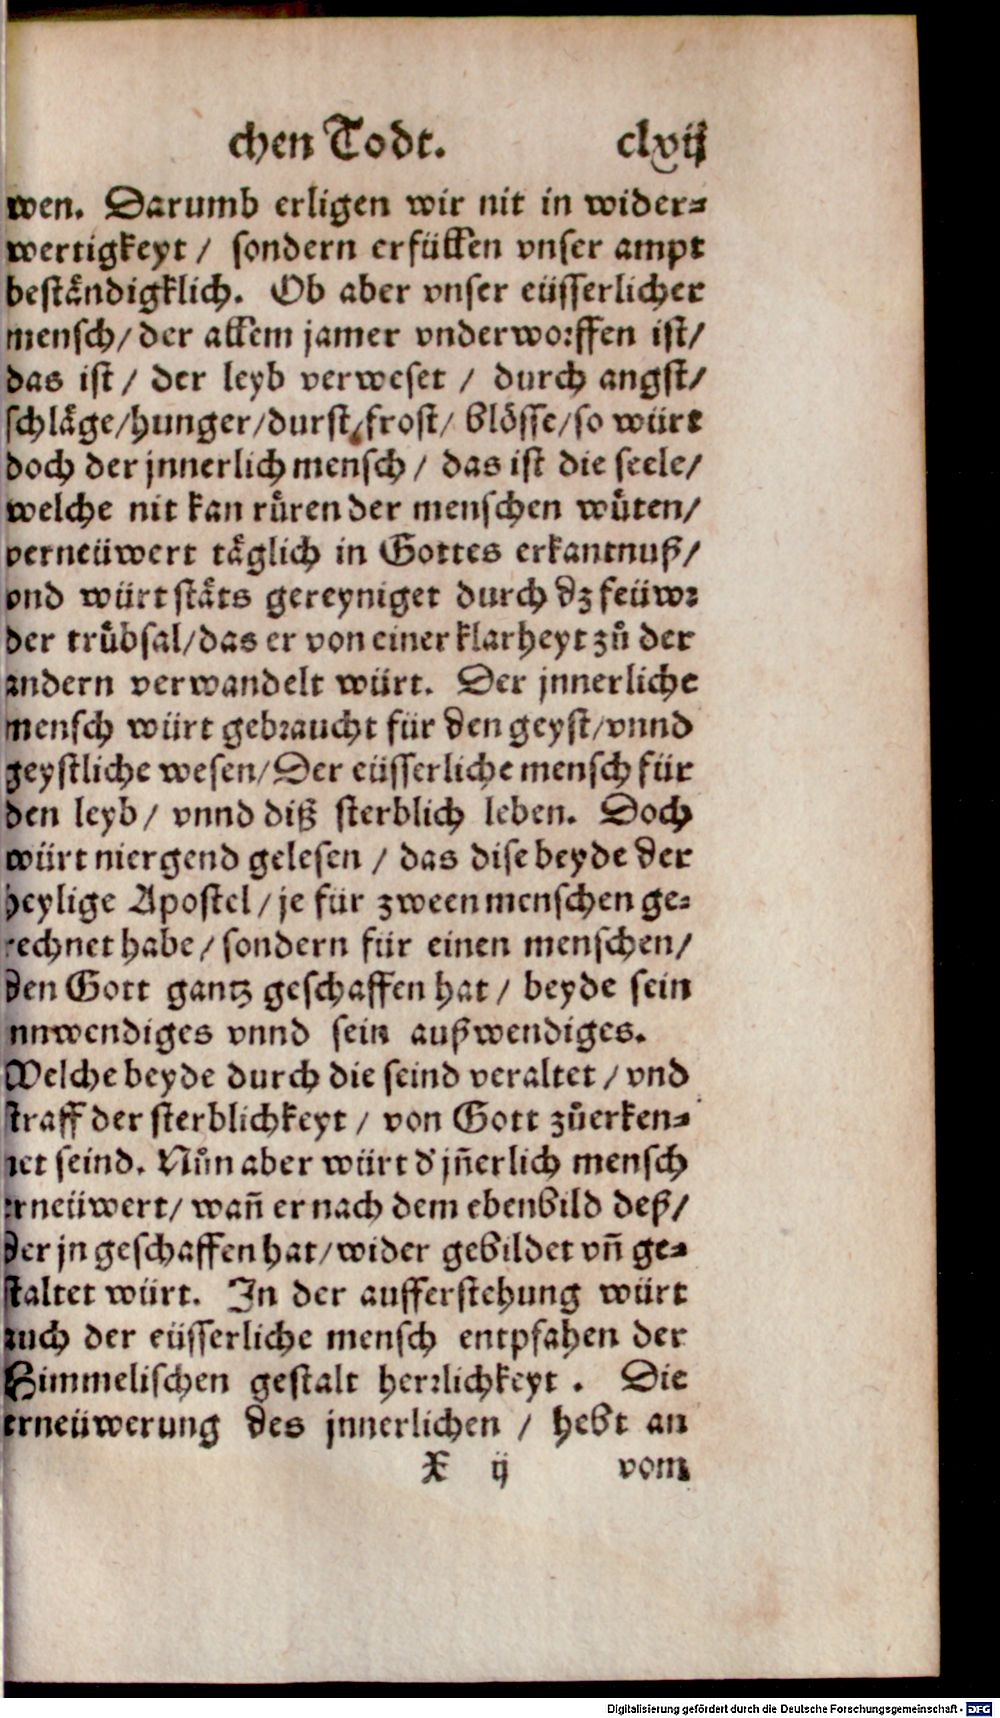 chen Todt. clvij
wen. Darumb erligen wir nit in wider⸗
wertigkeyt / sondern erfüllen vnser ampt
beståndigklich. Ob aber vnser eüsserlicher
mensch / der allem jamer vnderworffen ist /
das ist / der leyb verweset / durch angst /
schlåge / hunger / durst / frost / blösse / so würt
doch der jnnerlich mensch / das ist die seele /
welche nit kan růren der menschen wůten /
verneüwert tåglich in Gottes erkantnuß /
vnd würt ståts gereyniget durch dz feüwr
der trůbsal / das er von einer klarheyt zů der
andern verwandelt würt. Der jnnerliche
mensch würt gebraucht für den geyst / vnnd
geystliche wesen / Der eüsserliche mensch für
den leyb / vnnd diß sterblich leben. Doch
würt niergend gelesen / das dise beyde der
heylige Apostel / je für zween menschen ge⸗
rechnet habe / sondern für einen menschen /
den Gott gantz geschaffen hat / beyde sein
innwendiges vnnd sein außwendiges.
Welche beyde durch die seind veraltet / vnd
straff der sterblichkeyt / von Gott zůerken⸗
net seind. Nůn aber würt d' jñerlich mensch
erneüwert / wañ er nach dem ebenbild deß /
der jn geschaffen hat / wider gebildet vñ ge⸗
staltet würt. In der aufferstehung würt
auch der eüsserliche mensch entpfahen der
Himmelischen gestalt herrlichkeyt. Die
erneüwerung des jnnerlichen / hebt an
X ij vom
Digitalisierung gefördert durch die Deutsche Forschungsgemeinschaft - DFG